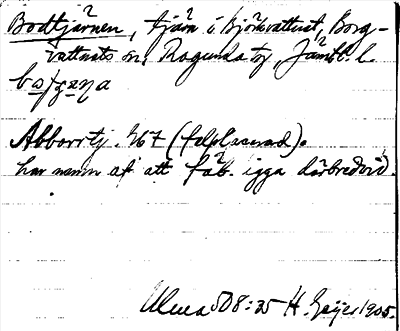 Bodtjärnen, tjärn i Björkvattnet, Borg-
vattnets sn, Ragunda tg, Jämtl. l.
Abborrtj. 267 (felplacerad).
har namn af att fäb. igga därbredvid.
508:25 H. Geijer 1905.